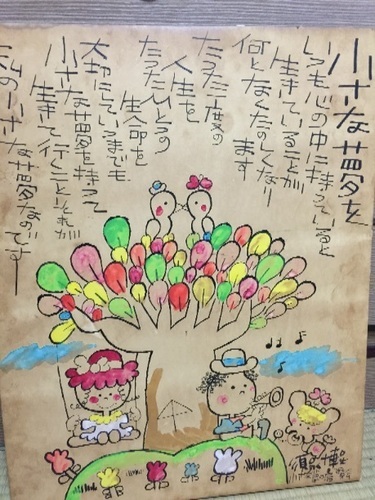 小さな夢を
いつも心の中に持っていると
生きていることが
何となくたのしくなり
ます
たった一度の
人生を
たったひとつの
生命を
大切にしていつまでも
小さな夢を持って
生きて行くことそれが
私の小さな夢なのです
須永博士